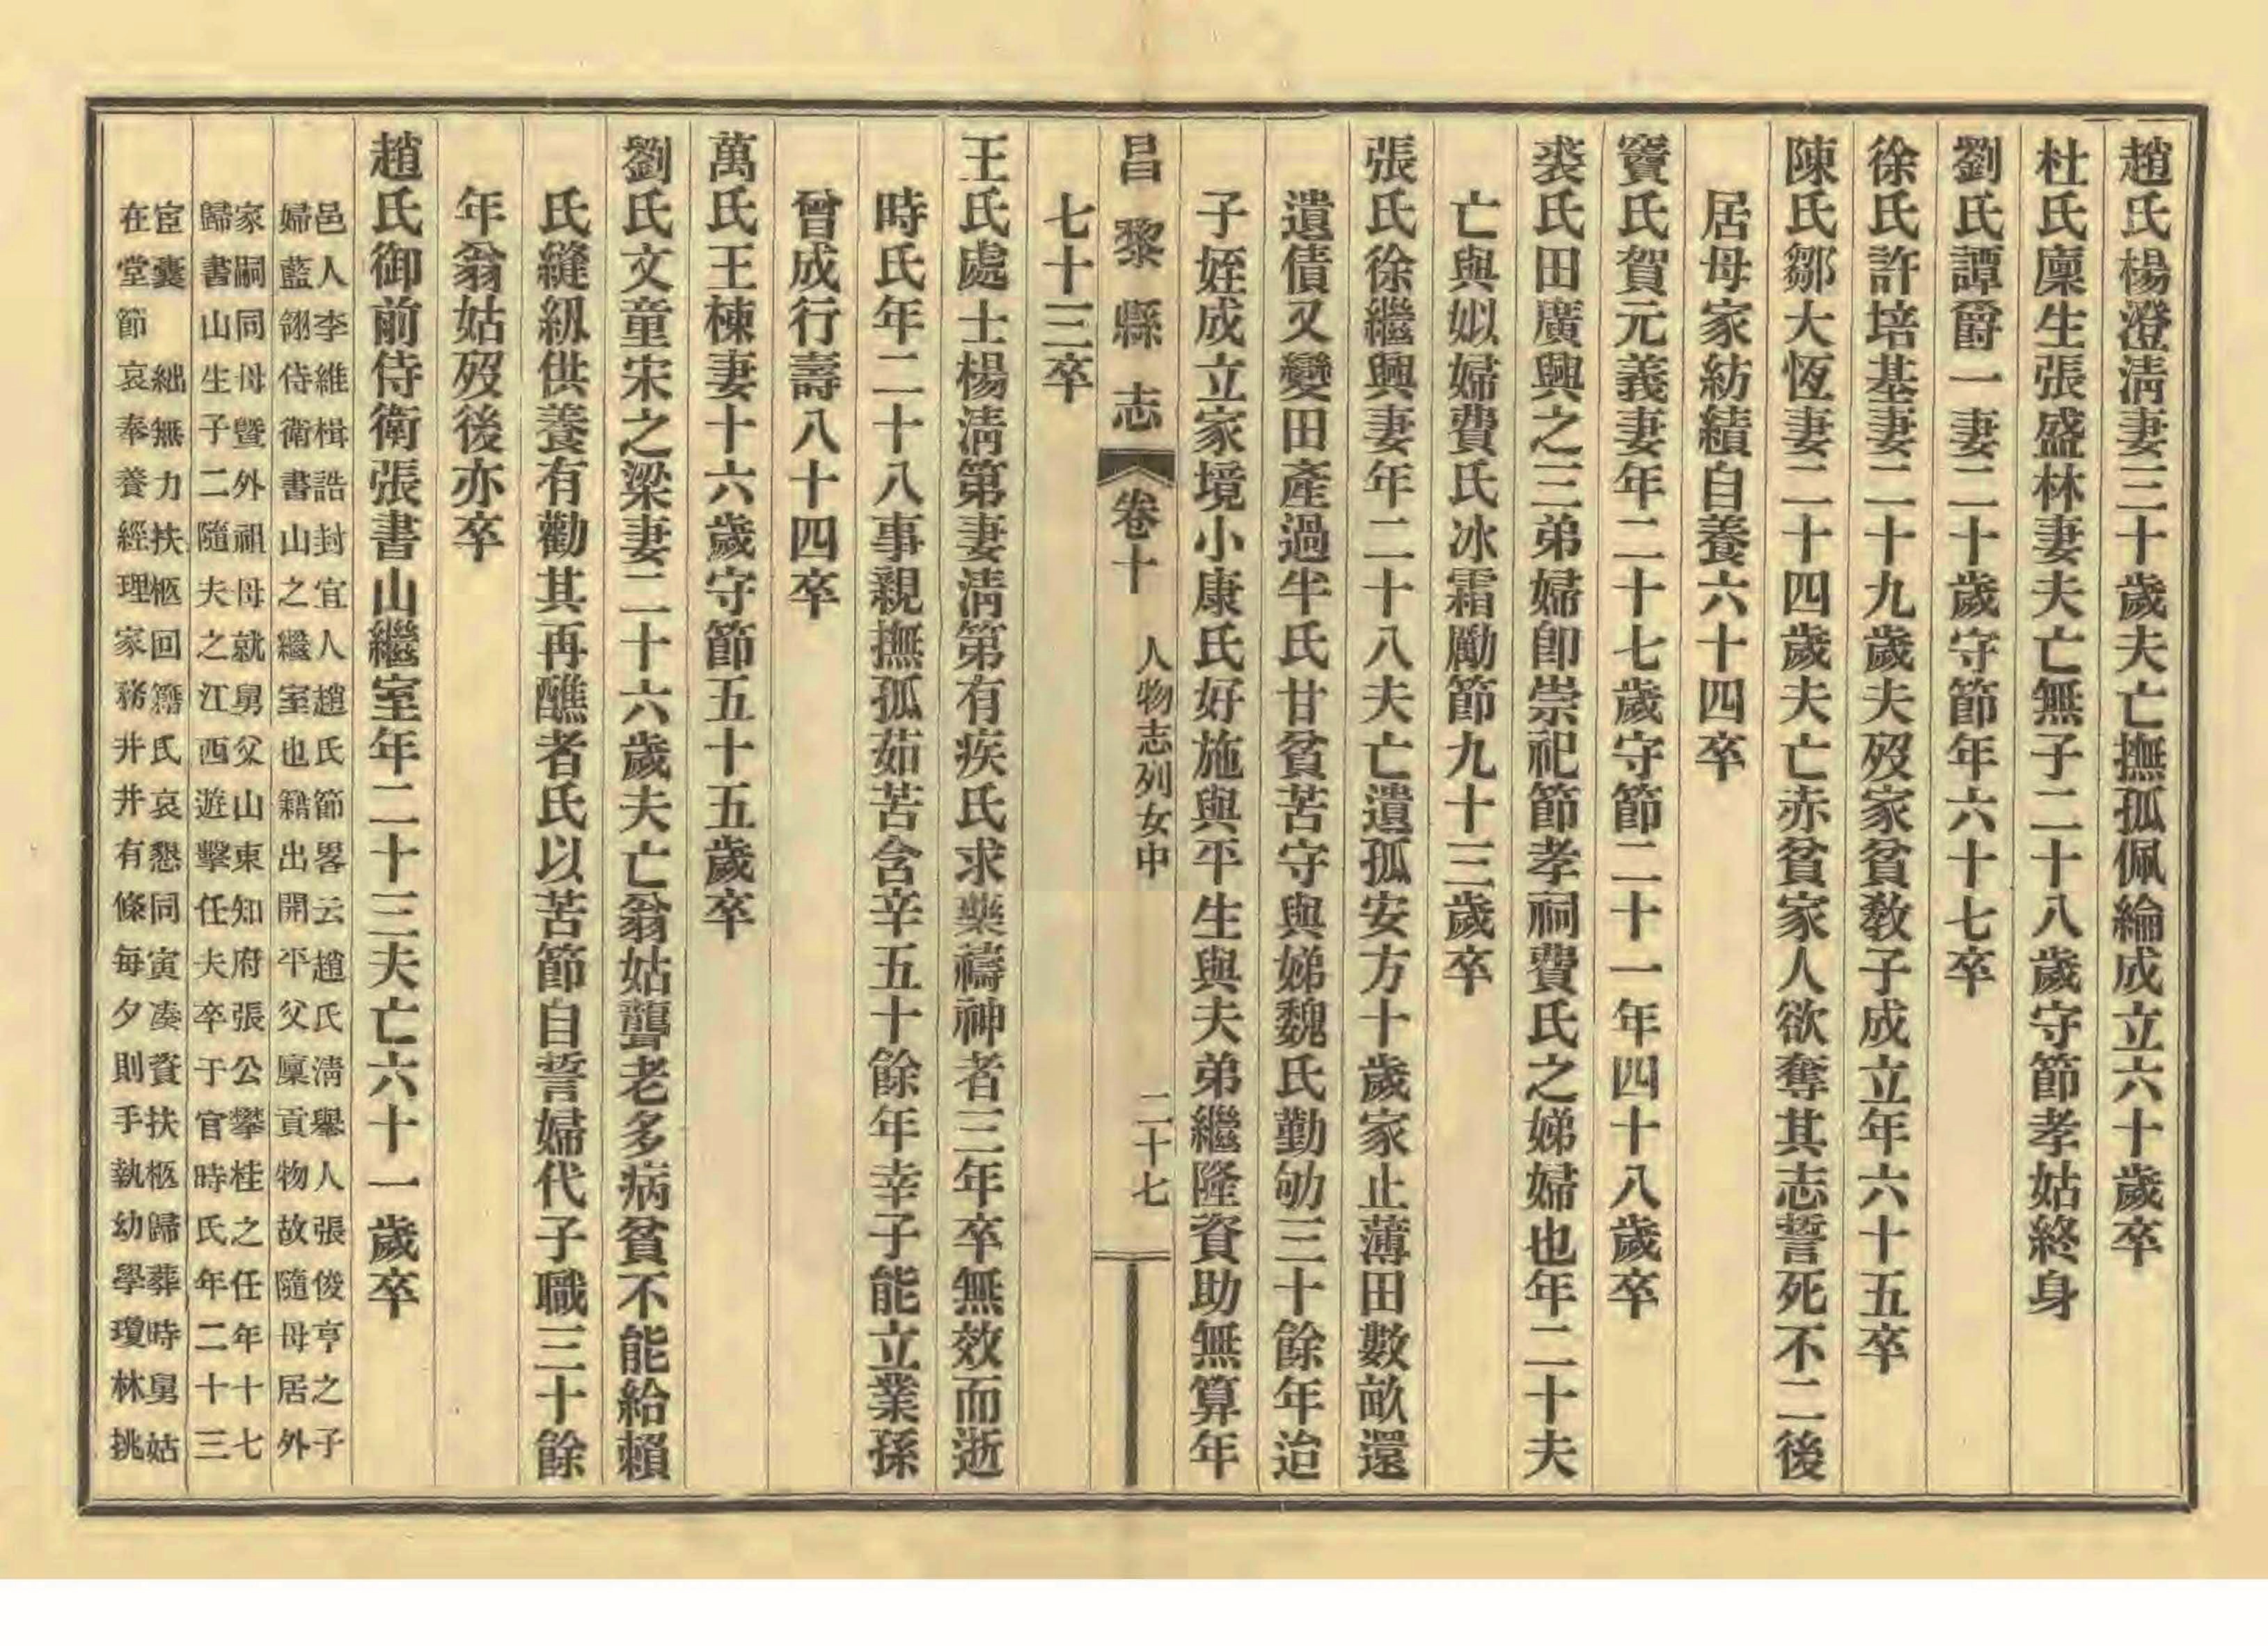 趙氏楊澄淸妻三十歲夫亡撫孤佩綸成立六十歲卒
杜氏廩生張盛林妻夫亡無子二十八歲守節孝姑終身
劉氏譚爵一妻二十歲守節年六十七卒
徐氏許培基妻二十九歲夫歿家貧敎子成立年六十五卒
陳氏鄒大恆妻二十四歲夫亡赤貧家人欲奪其志誓死不二後
居母家紡績自養六十四卒
竇氏賀元義妻年二十七歲守節二十一年四十八歲卒
裘氏田廣興之三弟婦卽崇祀節孝祠費氏之娣婦也年二十夫
亡與姒婦費氏冰霜勵節九十三歲卒
張氏徐繼興妻年二十八夫亡遺孤安方十歲家止薄田數畝還
遺債又變田產過半氏甘貧苦守與娣魏氏勤劬三十餘年迨
子姪成立家境小康氏好施與平生與夫弟繼隆資助無算年
昌黎縣志 卷十 人物志列女中 二十七
七十三卒
王氏處士楊淸第妻淸第有疾氏求藥禱神者三年卒無效而逝
時氏年二十八事親撫孤茹苦含辛五十餘年幸子能立業孫
曾成行壽八十四卒
萬氏王棟妻十六歲守節五十五歲卒
劉氏文童宋之梁妻二十六歲夫亡翁姑聾老多病貧不能給賴
氏縫紉供養有勸其再醮者氏以苦節自誓婦代子職三十餘
年翁姑歿後亦卒
趙氏御前侍衛張書山繼室年二十三夫亡六十一歲卒
邑人李維楫誥封宜人趙氏節畧云趙氏淸舉人張俊亨之子
婦藍翎侍衛書山之繼室也籍出開平父廩貢物故隨母居外
家嗣同母暨外祖母就舅父山東知府張公攀桂之任年十七
歸書山生子二隨夫之江西遊擊任夫卒于官時氏年二十三
宦囊 絀無力扶柩回籍氏哀懇同寅湊資扶柩歸葬時舅姑
在堂節哀奉養經理家務井井有條每夕則手執幼學瓊林挑